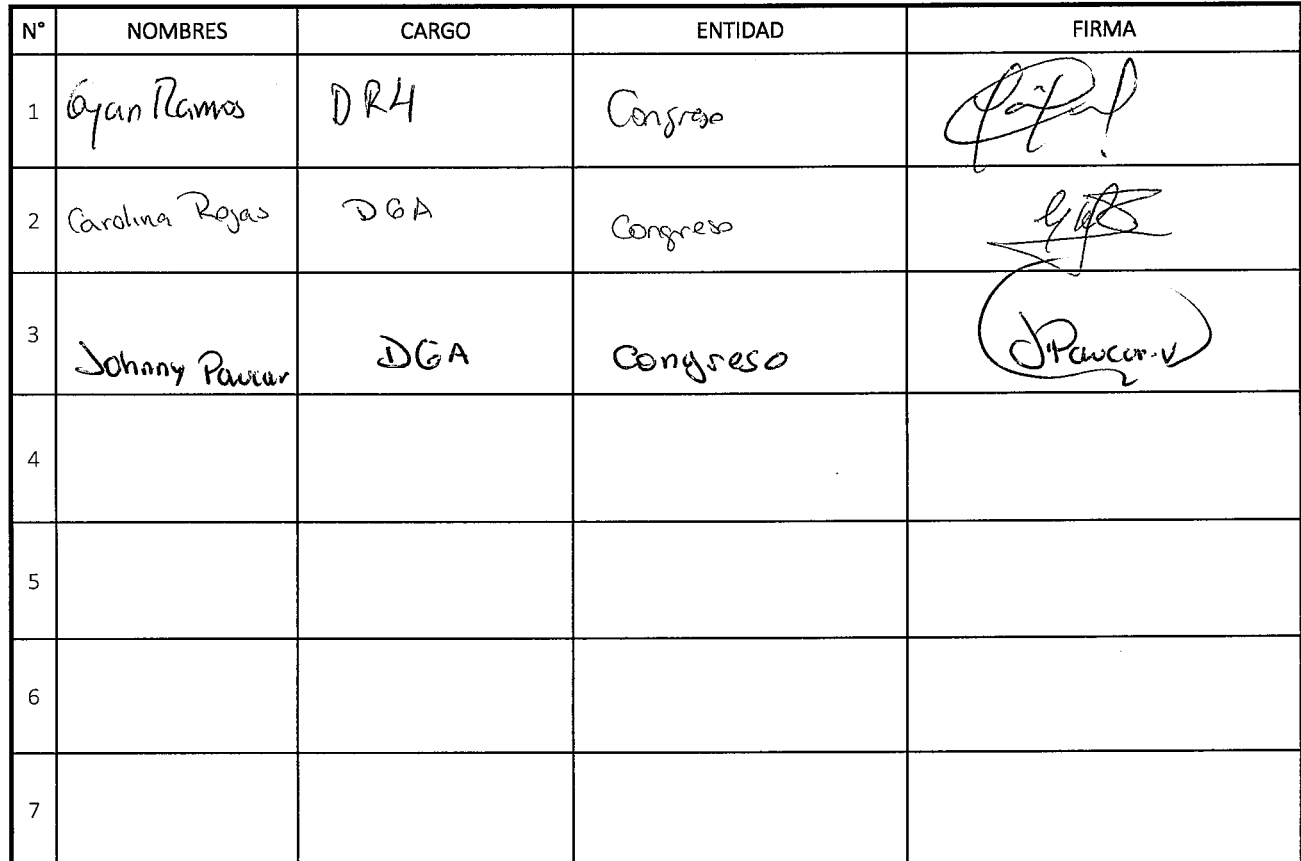 N° NOMBRES CARGO ENTIDAD FIRMA
1 Gyan Ramos DRH Congreso
2 Carolina Rojas DGA Congreso
3 Johnny Paucar DGA Congreso JPaucar.V
4
5
6
7